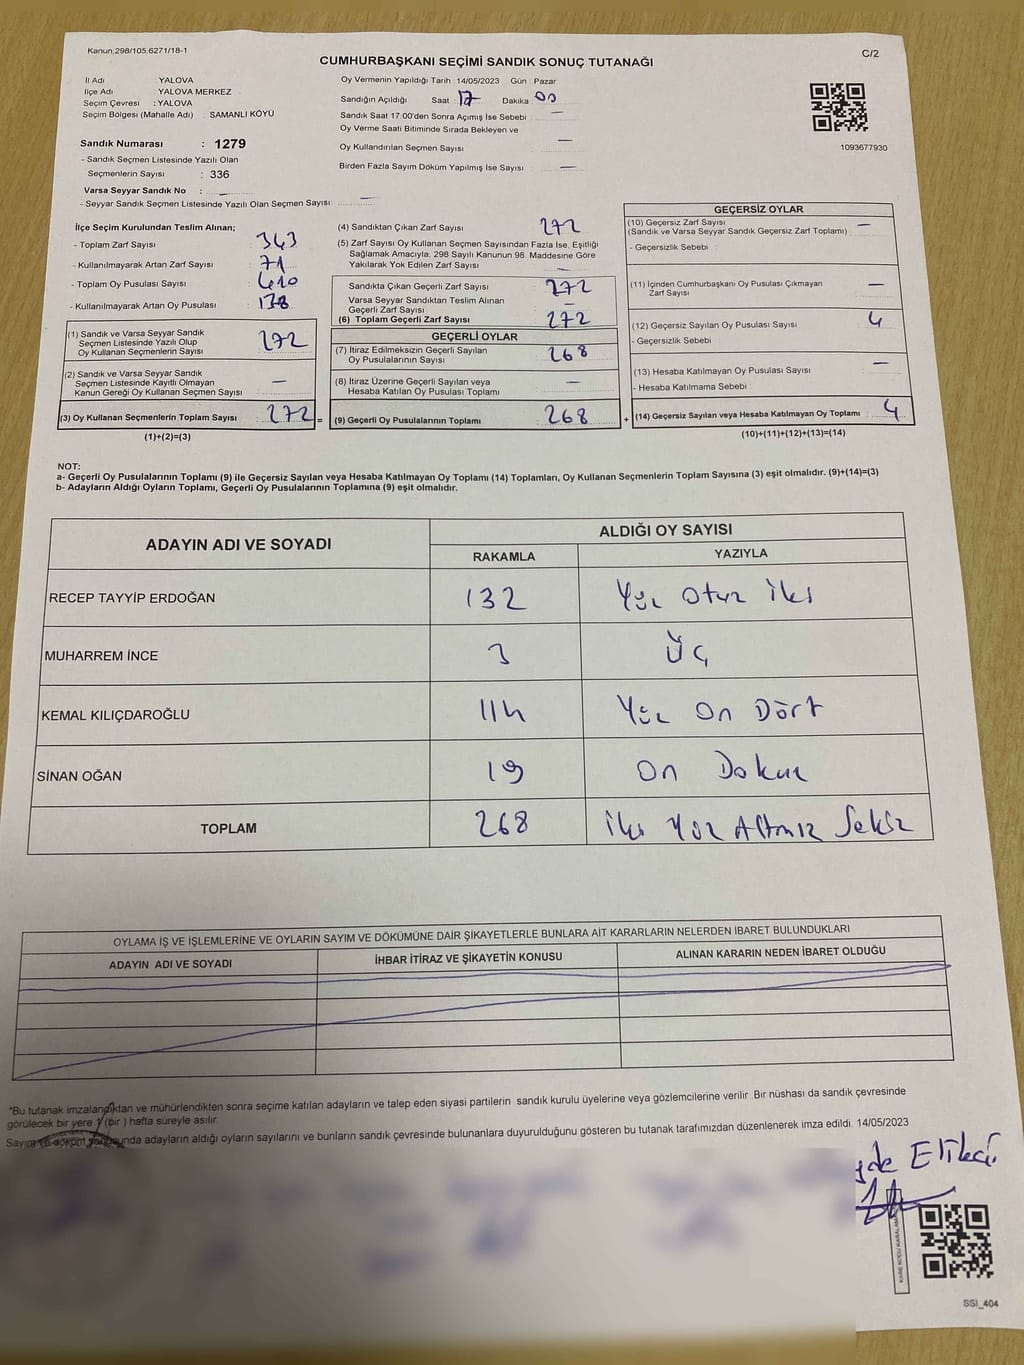 Kanun;298/105,6271/18-1
C/2
CUMHURBAŞKANI SEÇİMİ SANDIK SONUÇ TUTANAĞI
İl Adı YALOVA
İlçe Adı : YALOVA MERKEZ
Seçim Çevresi : YALOVA
Seçim Bölgesi (Mahalle Adı) : SAMANLI KÖYÜ
Sandık Numarası : 1279
- Sandık Seçmen Listesinde Yazılı Olan
Seçmenlerin Sayısı : 336
Varsa Seyyar Sandık No : —
- Seyyar Sandık Seçmen Listesinde Yazılı Olan Seçmen Sayısı: —
Oy Vermenin Yapıldığı Tarih 14/05/2023 Gün : Pazar
Sandığın Açıldığı Saat 17 Dakika 00
Sandık Saat 17:00'den Sonra Açımış İse Sebebi : —
Oy Verme Saati Bitiminde Sırada Bekleyen ve
Oy Kullandırılan Seçmen Sayısı : —
Birden Fazla Sayım Döküm Yapılmış İse Sayısı : —
1093677930
İlçe Seçim Kurulundan Teslim Alınan;
- Toplam Zarf Sayısı : 343
- Kullanılmayarak Artan Zarf Sayısı : 71
- Toplam Oy Pusulası Sayısı : 410
- Kullanılmayarak Artan Oy Pusulası : 138
(1) Sandık ve Varsa Seyyar Sandık
Seçmen Listesinde Yazılı Olup
Oy Kullanan Seçmenlerin Sayısı : 272
(2) Sandık ve Varsa Seyyar Sandık
Seçmen Listesinde Kayıtlı Olmayan
Kanun Gereği Oy Kullanan Seçmen Sayısı : —
(3) Oy Kullanan Seçmenlerin Toplam Sayısı : 272 =
(1)+(2)=(3)
(4) Sandıktan Çıkan Zarf Sayısı : 272
(5) Zarf Sayısı Oy Kullanan Seçmen Sayısından Fazla İse, Eşitliği
Sağlamak Amacıyla; 298 Sayılı Kanunun 98. Maddesine Göre
Yakılarak Yok Edilen Zarf Sayısı : —
Sandıkta Çıkan Geçerli Zarf Sayısı : 272
Varsa Seyyar Sandıktan Teslim Alınan
Geçerli Zarf Sayısı : —
(6) Toplam Geçerli Zarf Sayısı : 272
GEÇERLİ OYLAR
(7) İtiraz Edilmeksizin Geçerli Sayılan
Oy Pusulalarının Sayısı : 268
(8) İtiraz Üzerine Geçerli Sayılan veya
Hesaba Katılan Oy Pusulası Toplamı : —
(9) Geçerli Oy Pusulalarının Toplamı : 268 +
GEÇERSİZ OYLAR
(10) Geçersiz Zarf Sayısı : —
(Sandık ve Varsa Seyyar Sandık Geçersiz Zarf Toplamı)
- Geçersizlik Sebebi :
(11) İçinden Cumhurbaşkanı Oy Pusulası Çıkmayan
Zarf Sayısı : —
(12) Geçersiz Sayılan Oy Pusulası Sayısı : 4
- Geçersizlik Sebebi :
(13) Hesaba Katılmayan Oy Pusulası Sayısı : —
- Hesaba Katılmama Sebebi :
(14) Geçersiz Sayılan veya Hesaba Katılmayan Oy Toplamı : 4
(10)+(11)+(12)+(13)=(14)
NOT:
a- Geçerli Oy Pusulalarının Toplamı (9) ile Geçersiz Sayılan veya Hesaba Katılmayan Oy Toplamı (14) Toplamları, Oy Kullanan Seçmenlerin Toplam Sayısına (3) eşit olmalıdır. (9)+(14)=(3)
b- Adayların Aldığı Oyların Toplamı, Geçerli Oy Pusulalarının Toplamına (9) eşit olmalıdır.
ADAYIN ADI VE SOYADI
ALDIĞI OY SAYISI
RAKAMLA YAZIYLA
RECEP TAYYİP ERDOĞAN 132 Yüz Otuz İki
MUHARREM İNCE 3 Üç
KEMAL KILIÇDAROĞLU 114 Yüz On Dört
SİNAN OĞAN 19 On Dokuz
TOPLAM 268 İki Yüz Altmış Sekiz
OYLAMA İŞ VE İŞLEMLERİNE VE OYLARIN SAYIM VE DÖKÜMÜNE DAİR ŞİKAYETLERLE BUNLARA AİT KARARLARIN NELERDEN İBARET BULUNDUKLARI
ADAYIN ADI VE SOYADI İHBAR İTİRAZ VE ŞİKAYETİN KONUSU ALINAN KARARIN NEDEN İBARET OLDUĞU
*Bu tutanak imzalandıktan ve mühürlendikten sonra seçime katılan adayların ve talep eden siyasi partilerin sandık kurulu üyelerine veya gözlemcilerine verilir. Bir nüshası da sandık çevresinde
görülecek bir yere 1 (bir) hafta süreyle asılır.
Sayım ve döküm sonucunda adayların aldığı oyların sayılarını ve bunların sandık çevresinde bulunanlara duyurulduğunu gösteren bu tutanak tarafımızdan düzenlenerek imza edildi. 14/05/2023
SSİ_404